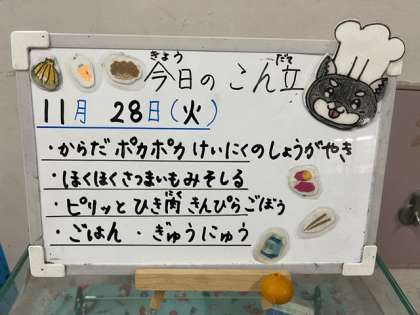 きょう だて
今日のこん立
11月 28日(火)
・からだ ポカポカ けいにくのしょうがやき
・ほくほくさつまいもみそしる
にく
・ピリッと ひき肉 きんぴらごぼう
・ごはん ・ぎゅうにゅう